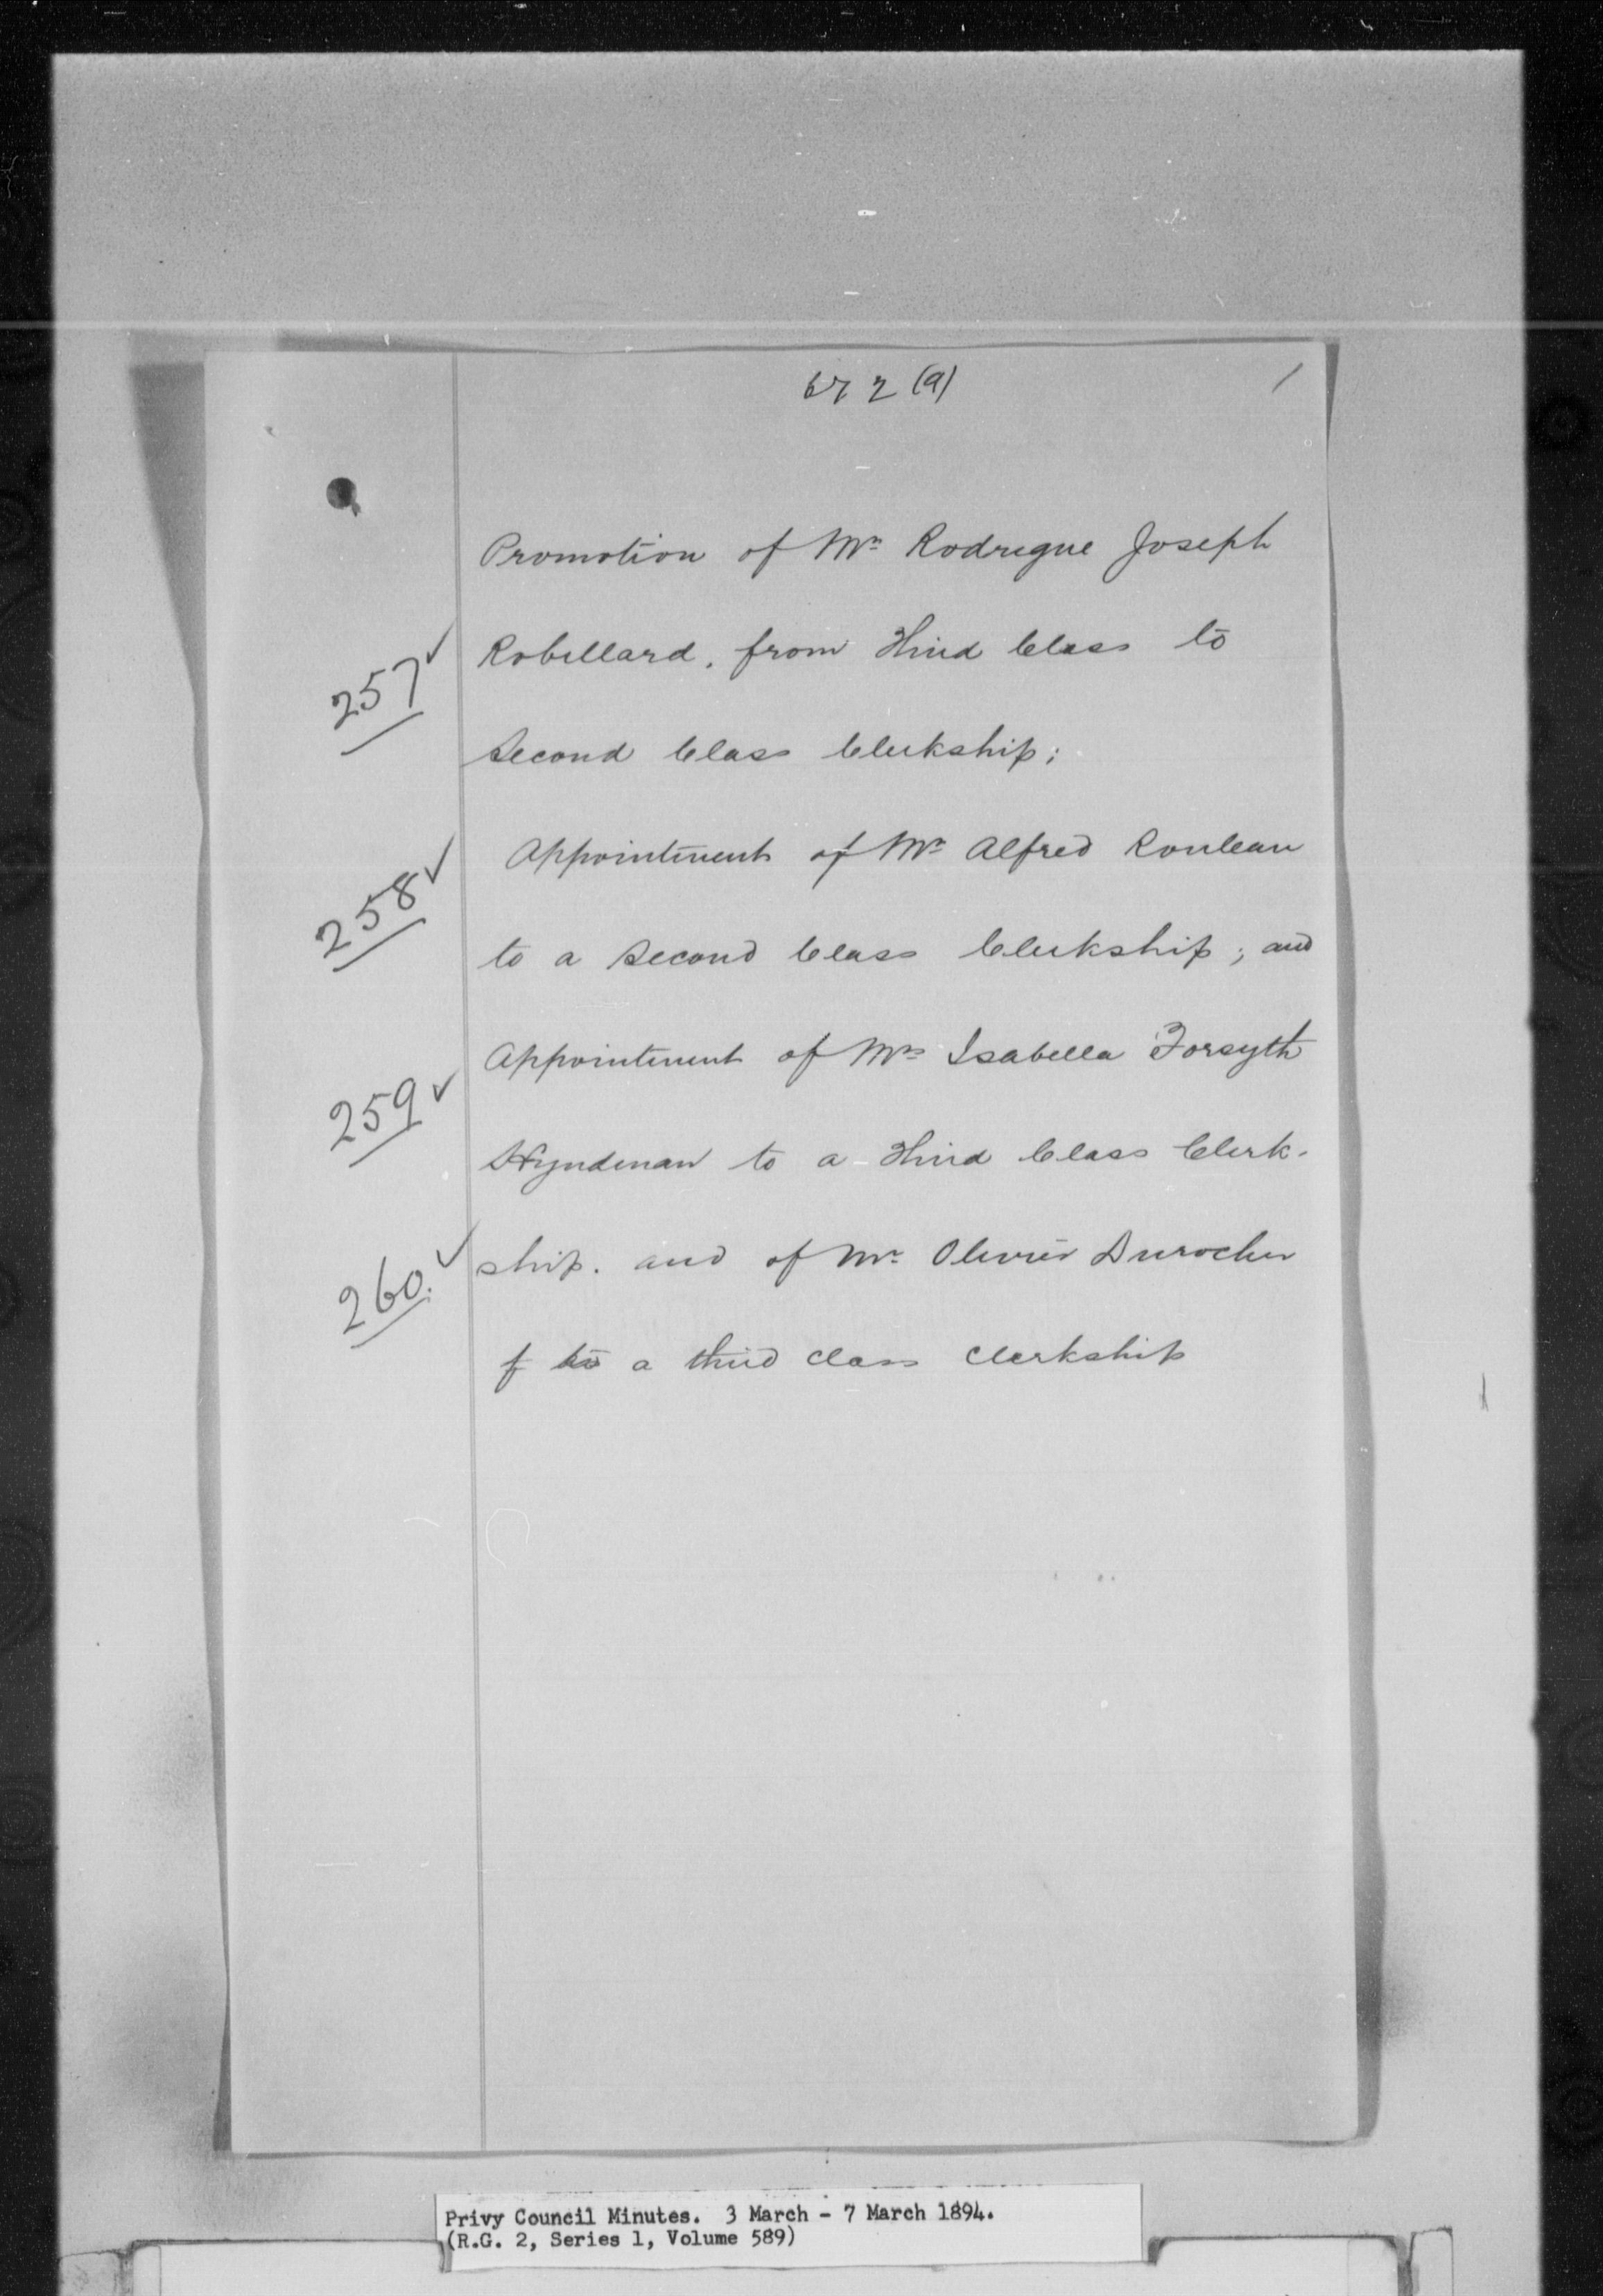 672 (a)
1
Promotion of Mr Rodrigue Joseph
257 ✓ Robillard, from Third Class to
Second Class Clerkship;
Appointment of Mr Alfred Rouleau
258 ✓ to a Second Class Clerkship; and
Appointment of Mrs Isabella Forsyth
259 ✓ Hyndman to a Third Class Clerk-
260. ✓ ship. and of Mr. Olivier Durocher
to a third class clerkship
Privy Council Minutes. 3 March - 7 March 1894.
(R.G. 2, Series 1, Volume 589)